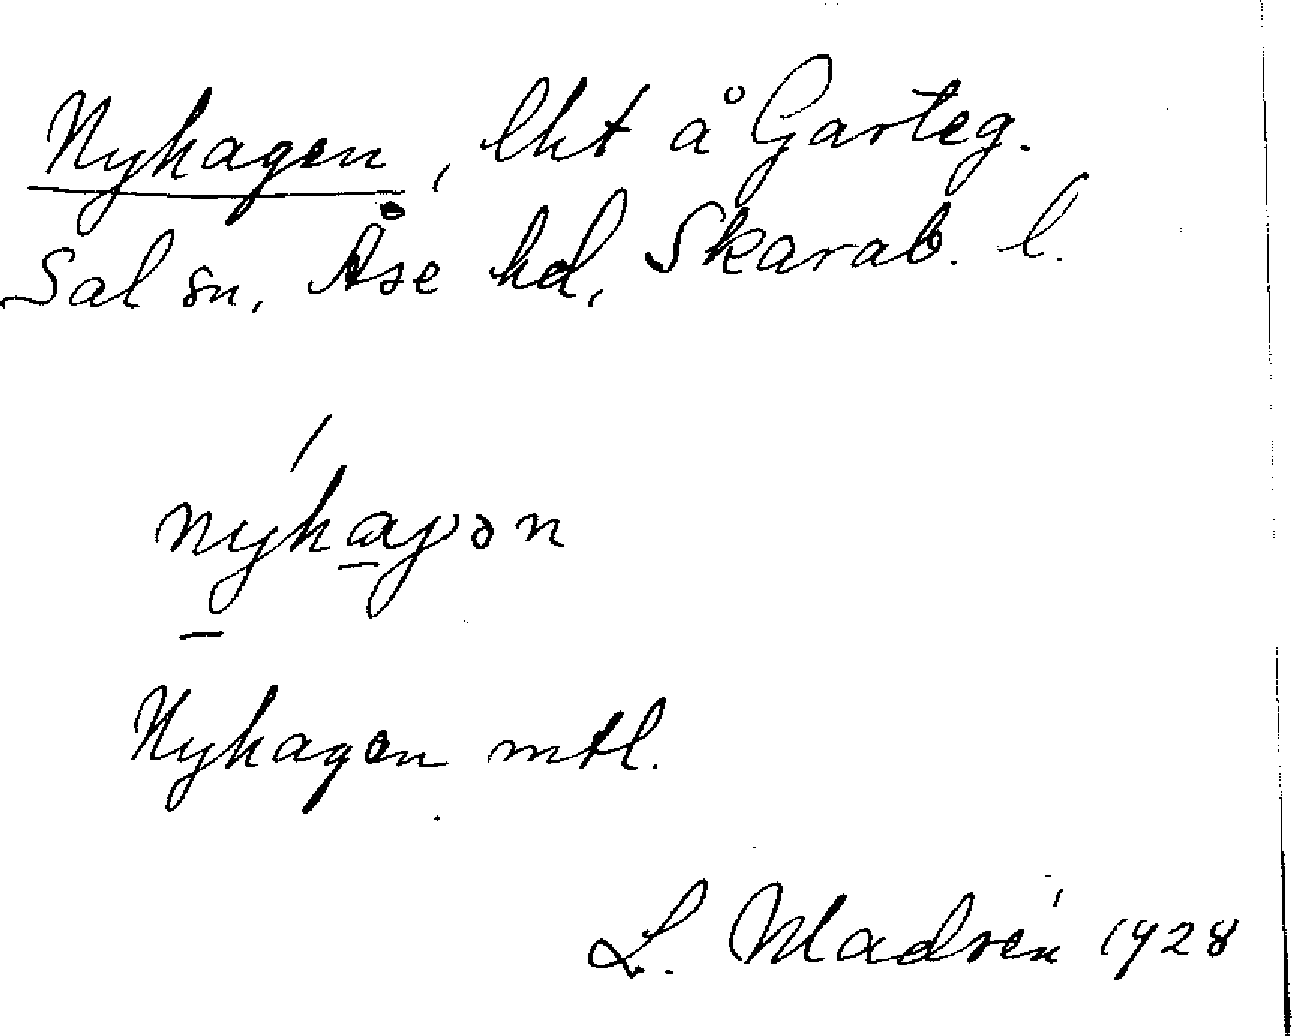 Nyhagen, lht å Garteg.
Sal sn, Åse hd, Skarab. l.
nyhaɡən
Nyhagen mtl.
L. Madrén 1928